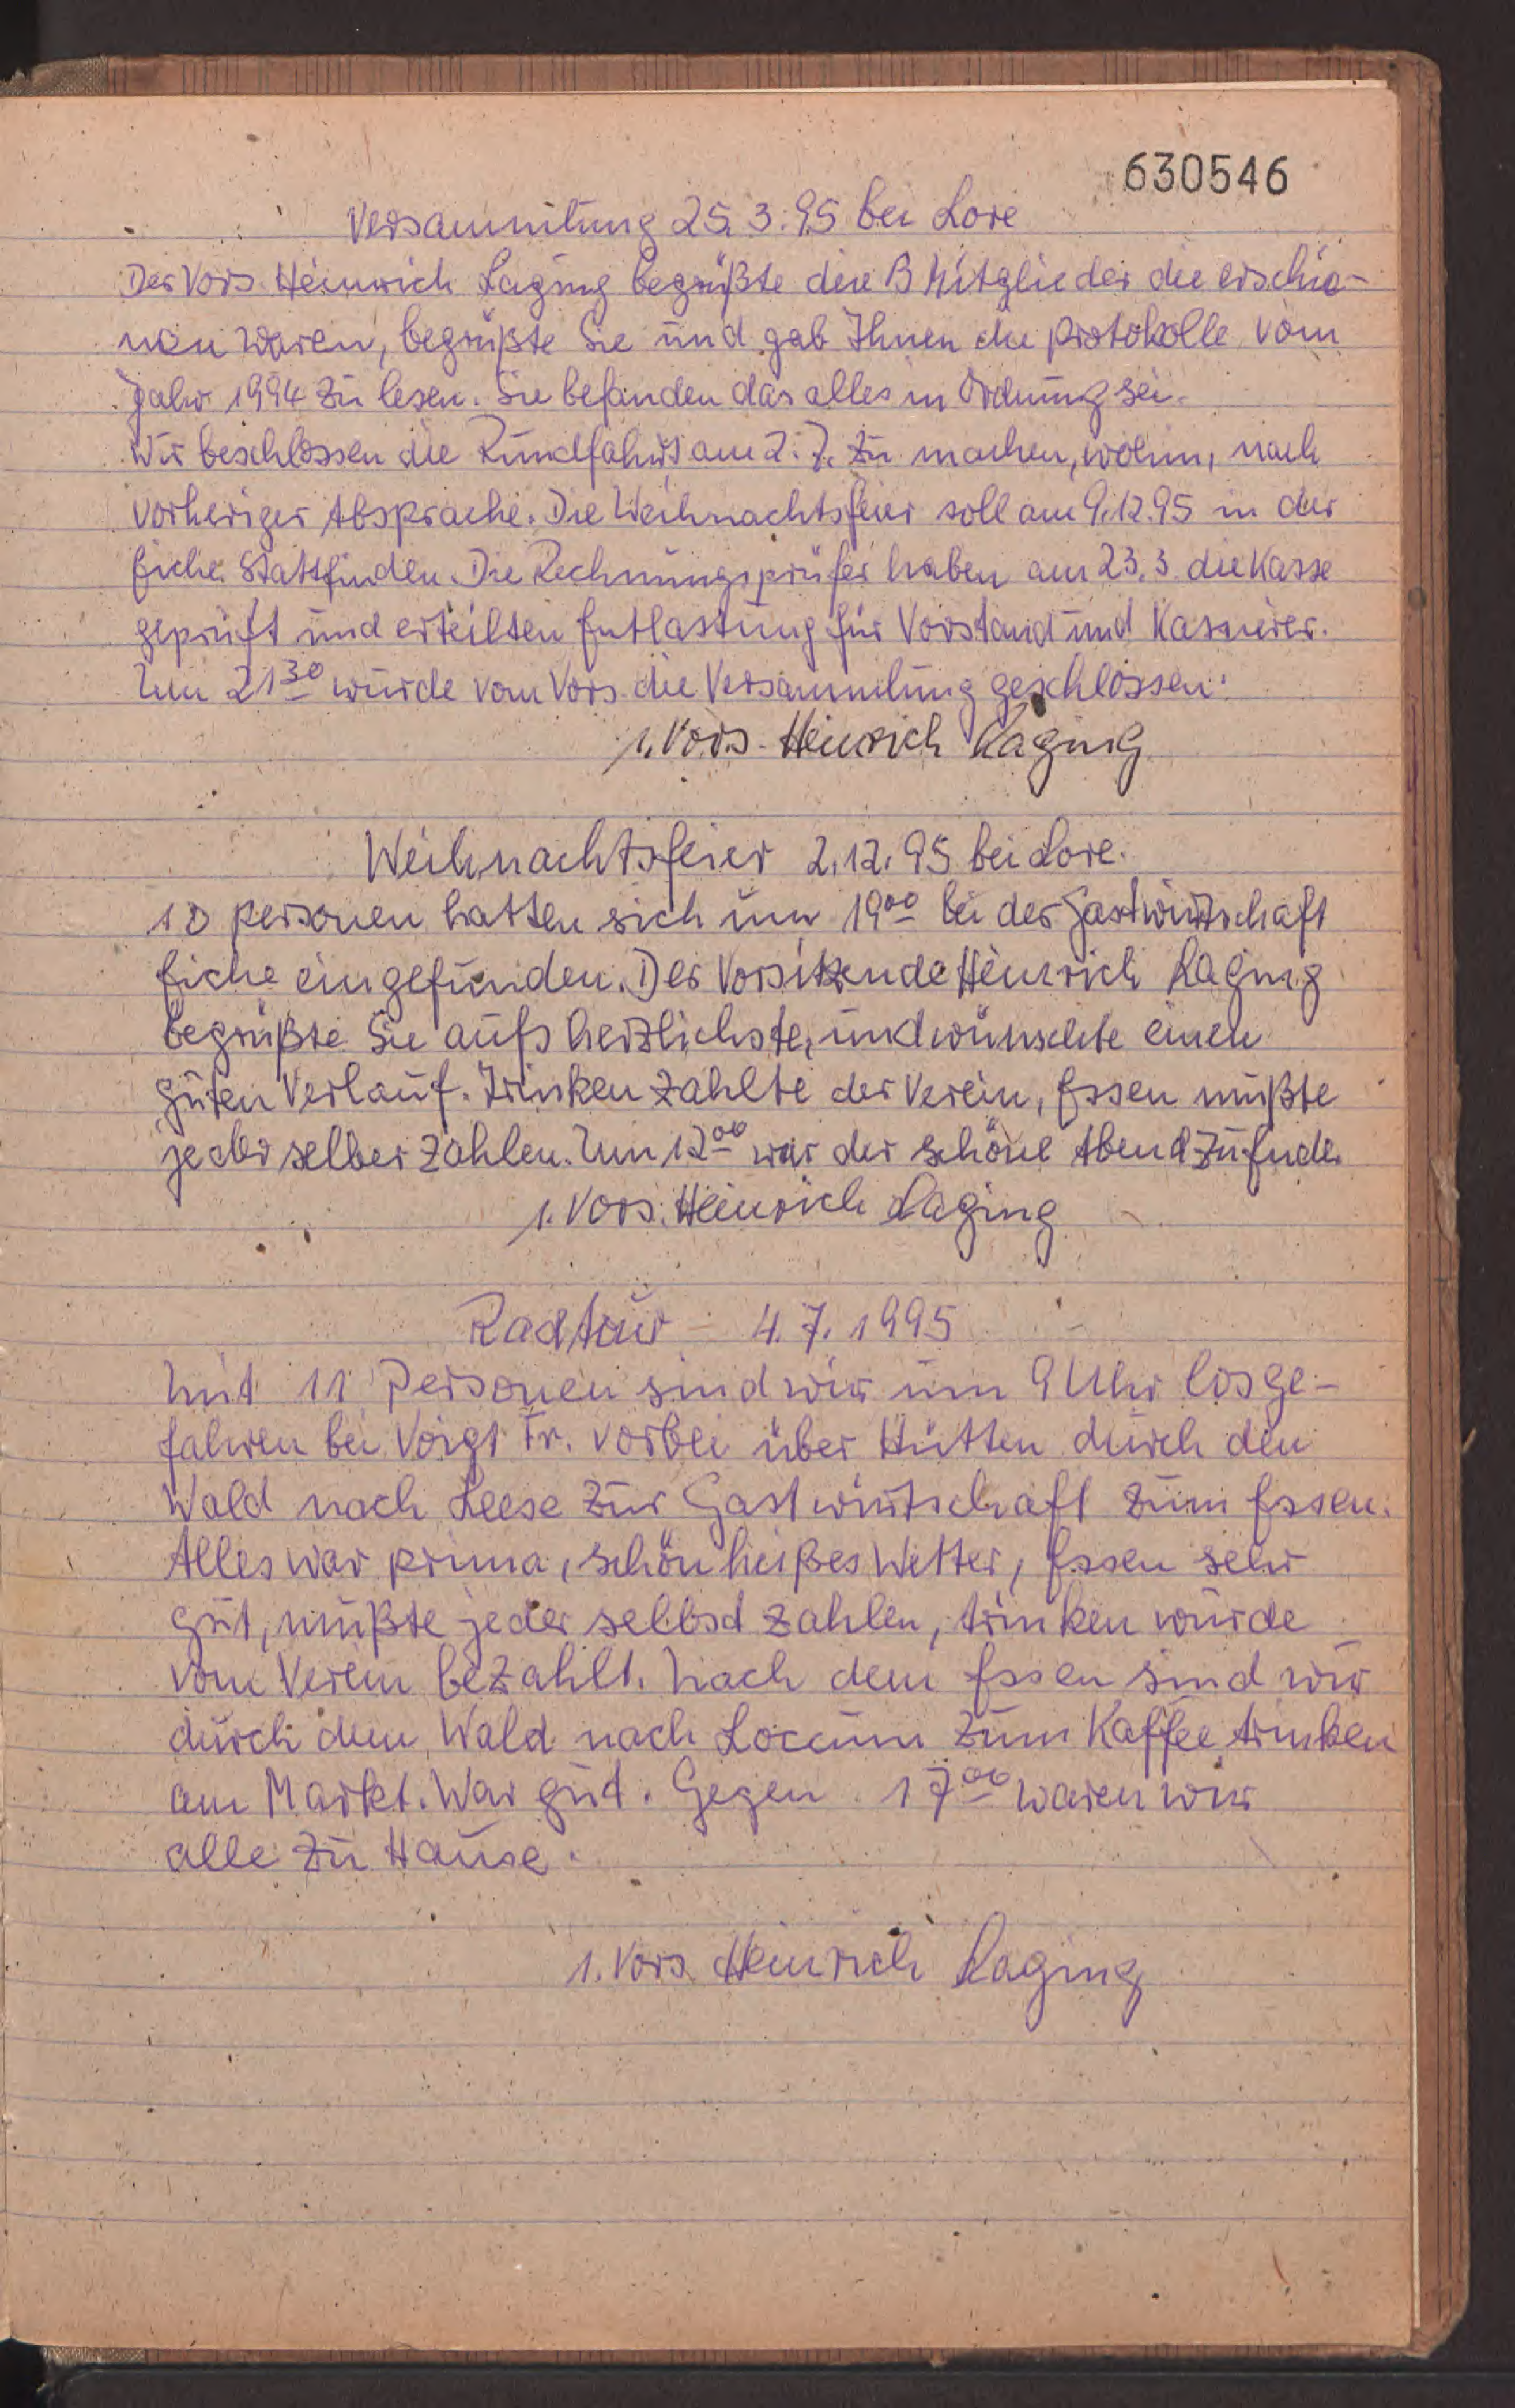 630546
Versammlung 25.3.95 bei Lore
Der Vors. Heinrich Laging begrüßte die 13 Mitglieder die erschie-
nen waren, begrüßte Sie und gab Ihnen die Protokolle vom
Jahr 1994 zu lesen. Sie befanden das alles in Ordnung sei.
Wir beschlossen die Rundfahrt am 2.7. zu machen, wohin, nach
vorheriger Absprache. Die Weihnachtsfeier soll am 9.12.95 in der
Eiche Stattfinden. Die Rechnungsprüfer haben am 23.3. die Kasse
geprüft und erteilten Entlastung für Vorstand und Kassierer.
Um 21 30 wurde vom Vors. die Versammlung geschlossen.
1. Vors. Heinrich Laging
Weihnachtsfeier 2.12.95 bei Lore.
10 Personen hatten sich um 19 00 bei der Gastwirtschaft
Eiche eingefunden. Der Vorsitzende Heinrich Laging
begrüßte Sie aufs herzlichste, und wünschte einen
guten Verlauf. Trinken zahlte der Verein, Essen mußte
jeder selber zahlen. Um 12 00 war der schöne Abend zu Ende.
1. Vors. Heinrich Laging
Radtour - 4.7.1995
Mit 11 Personen sind wir um 9 Uhr losge-
fahren bei Voigt Fr. vorbei über Hütten durch den
Wald nach Leese zur Gastwirtschaft zum Essen.
Alles war prima, schön heißes Wetter, Essen sehr
gut, mußte jeder selbsd zahlen, trinken wurde
vom Verein bezahlt. Nach dem Essen sind wir
durch den Wald nach Loccum zum Kaffee trinken
am Markt. War gut. Gegen 17 00 waren wir
alle zu Hause.
1. Vors. Heinrich Laging